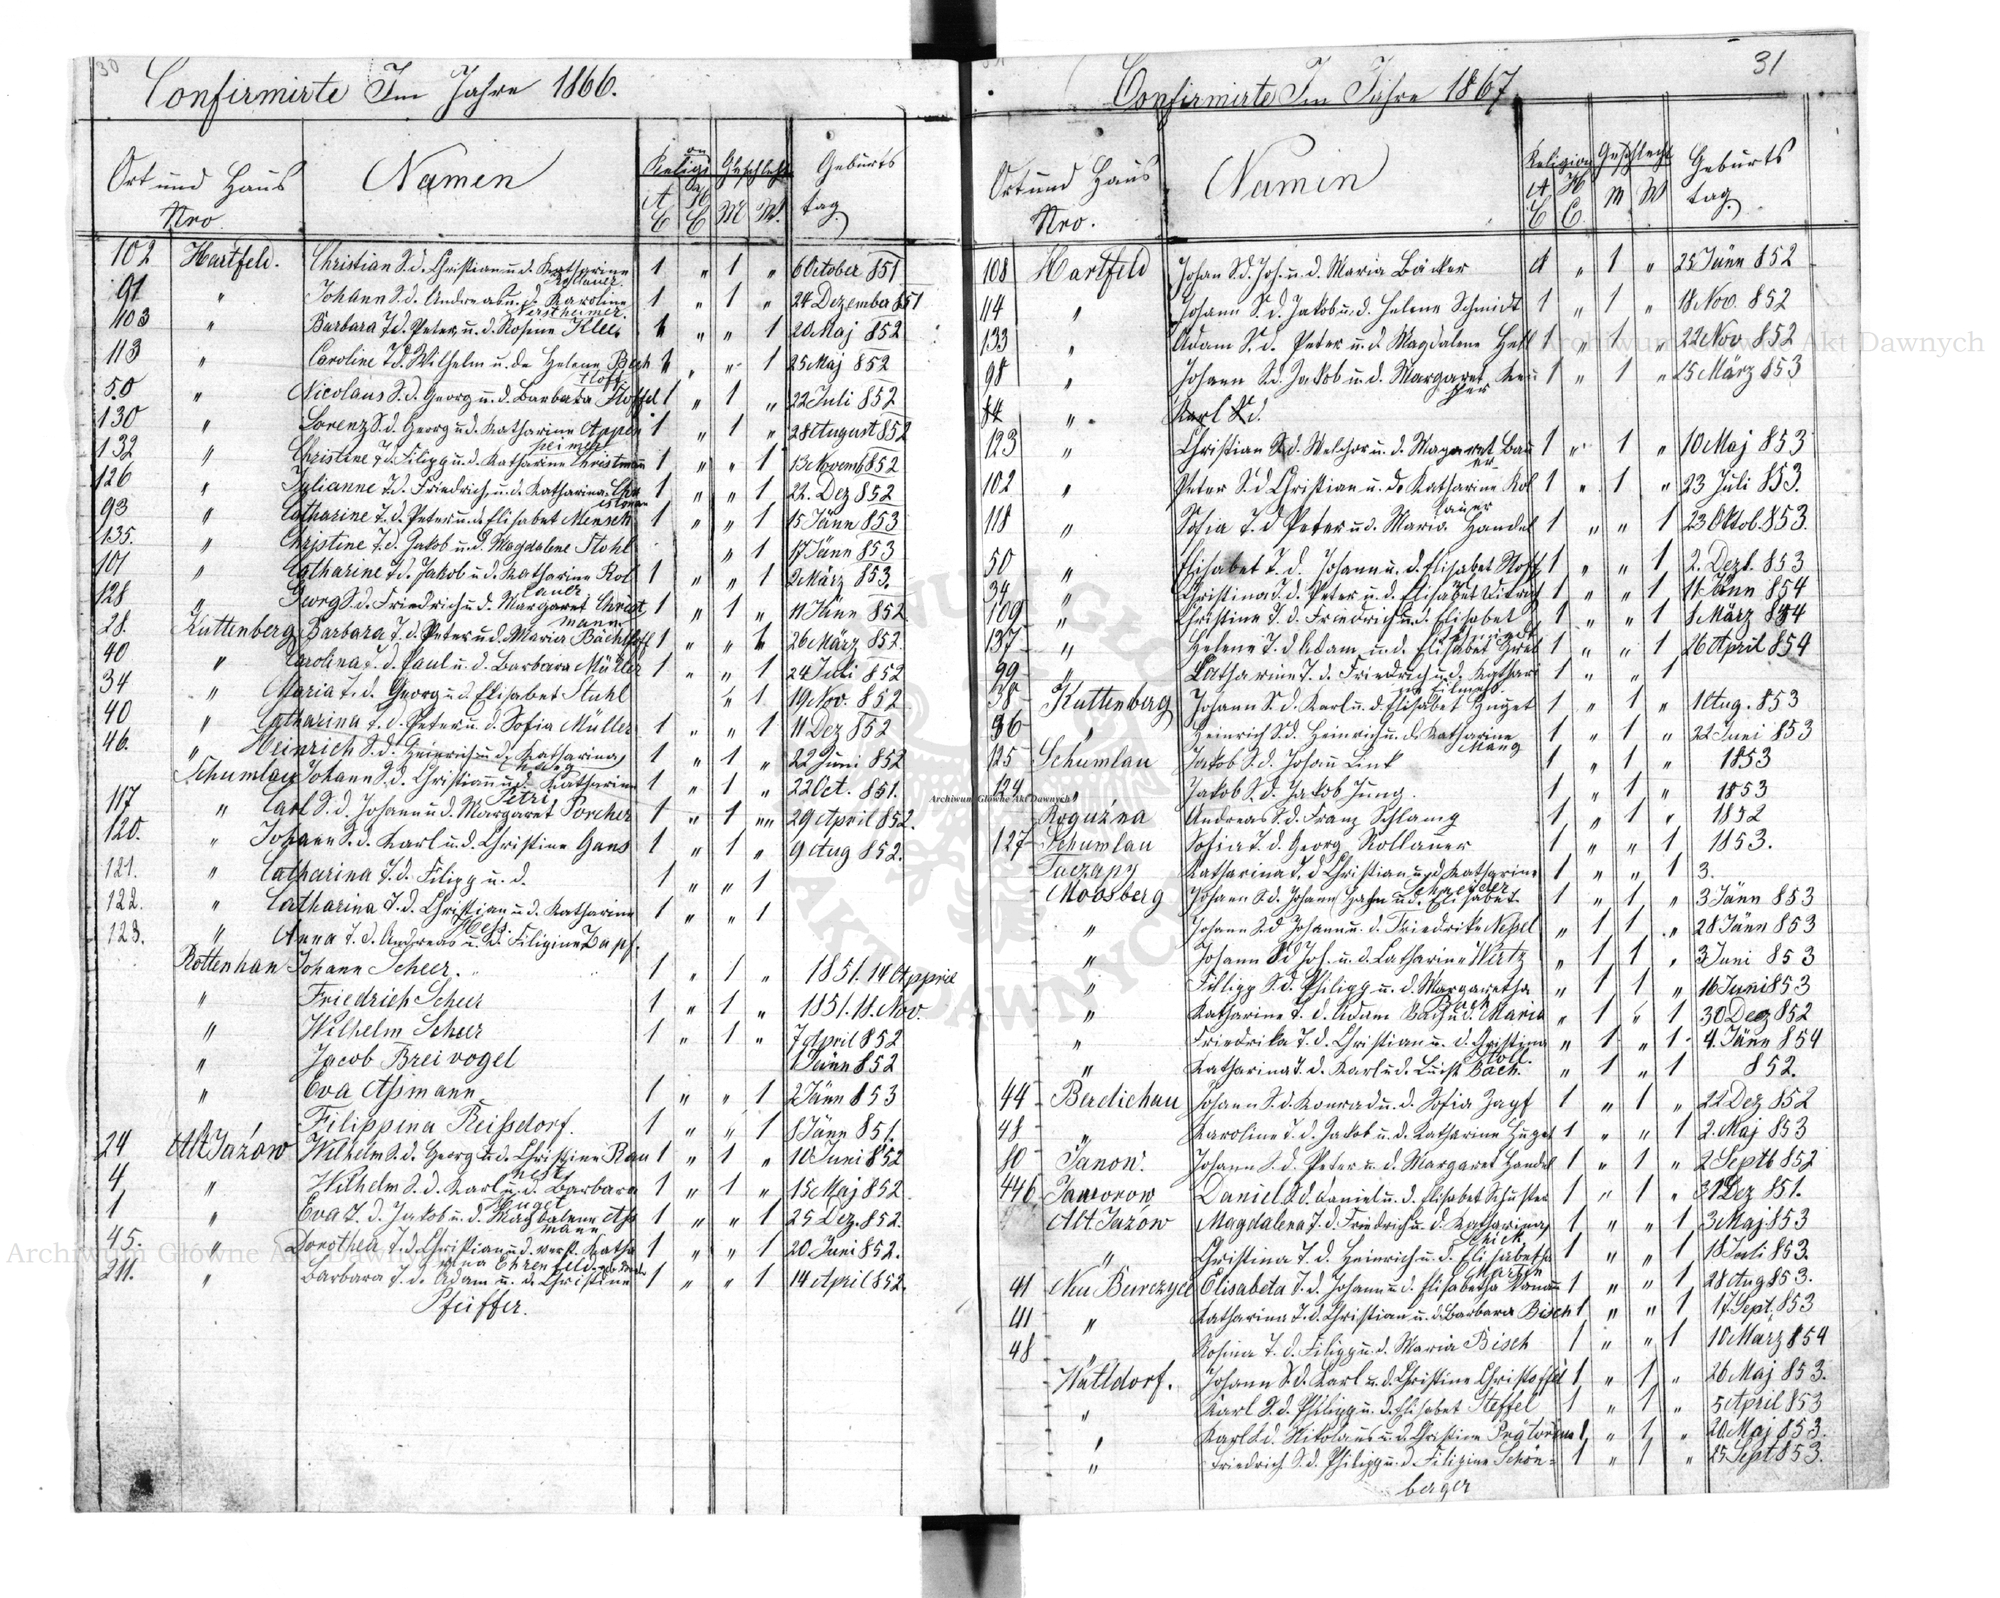 30
Confirmirte Im Jahre 1866.
Ort und Haus Nro
Namen
Religion
A C
H C
Geschlecht
M
W.
Geburts tag
102 Hartfeld. Christian S. d. Christian u. d. Katharine 1 " 1 " 6 October 851
Kollauer.
91 " Johann S. d. Andreas u. d. Karoline 1 " 1 " 24 Dezember 851
Nerstheimer.
103 " Barbara T. d. Peter u. d. Rosine Klees 1 " " 1 20 Maj 852
113 " Caroline T. d. Wilhelm u. de Helene Bech 1 " " 1 25 Maj 852
tloff
50 " Nicolaus S. d. Georg u. d. Barbara Stoffel 1 " 1 " 22 Juli 852
130 " Lorenz S. d. Georg u. d. Katharine Oppen 1 " 1 " 28 August 852
heimer
132 " Christine T. d. Filipp u. d. Katharine Christmann 1 " " 1 13 Novemb 852
126 " Julianne T. d. Friedrich u. d. Katharina 1 " " 1 22. Dez 852
93 " Catharine T. d. Peter u. d. Elisabet Mensch 1 " " 1 15 Jänn 853
135. " Christine T. d. Jakob u. d. Magdalene Stohl " 1 17 Jänn 853
101 " Catharine T. d. Jakob u. d. Katharine Kol 1 " " 1 2 März 853.
lauer
128 " Georg S. d. Friedrich u. d. Margaret Christ 1 " 1 " 11 Jänn 852
mann
28. Kuttenberg Barbara T. d. Peter u. d. Maria Bächtloff 1 " " 1 26 März 852
40 " Carolina T. d. Paul u. d. Barbara Müller 1 " " 1 24 Juli 852
34 " Maria T. d. Georg u. d. Elisabet Stuhl " 1 19 Nov. 852
40 " Catharina T. d. Peter u. d. Sofia Müller 1 " " 1 11 Dez 852
46. " Heinrich S. d. Heinrich u. d. Katharina 1 " 1 " 22 Juni 852
Schumlau Johann S. d. Christian u. d. Katharine 1 " 1 " 22 Oct. 851.
Petri
117 " Carl S. d. Johann u. d. Margaret Porcher 1 " 1 " " 29 April 852.
120. " Johann S. d. Karl u. d. Christine Gans 1 " 1 " 9 Aug 852.
121. " Catharina T. d. Filipp u. d. 1 " " 1
122. " Catharina T. d. Christian u. d. Katharine 1 " " 1
Hess.
123. " Anna T. d. Andreas u. d. Filipine Zapf.
Rottenhan Johann Scheer. 1 " 1 " 1851. 14 Appril
" Friedrich Scheer 1 " 1 " 1851. 18. Nov.
" Wilhelm Scheer 1 " 1 " 7 April 852
" Jacob Breivogel 1 Jänn 852
" Eva Assmann 1 " " 1 2 Jänn 853
Filippina Reissdorf. 1 " " 1 8 Jänn 851.
24 Alt Jazów Wilhelm S. d. Georg u. d. Christine Rau 1 " 1 " 10 Juni 852
4 " Wilhelm S. d. Karl u. d. Barbara 1 " 1 " 15 Maj 852
Huget
1 " Eva T. d. Jakob u. d. Magdalene Ass 1 " " 1 25 Dez. 852.
mann
45. " Dorothea T. d. Christian u. d. verst. Katha 1 " " 1 20 Juni 852.
rina Ehrenfeld
211. " Barbara T. d. Adam u. d. Christine 1 " " 1 14 April 852.
Pfeiffer.
31
Confirmirte Im Jahre 1867
Ort und Haus Nro.
Namen
Religion
A C
H C.
Geschlecht
M
W
Geburts tag.
108 Hartfeld Johan S. d. Joh. u. d. Maria Bäcker 1 " 1 " 25 Jänn 852
114 " Johann S. d. Jakob u. d. Helene Schmidt 1 " 1 " 18 Nov. 852
133 " Adam S. d. Peter u. d. Magdalene Heil 1 " 1 " 22 Nov. 852
98 " Johann S. d. Jakob u. d. Margaret Keu 1 " 1 " 25 März 853
cher
84 " Karl S. d.
123 " Christian S. d. Melchor u. d. Magaret Bau 1 " 1 " 10 Maj 853
er
102 " Peter S. d. Christian u. d. Katharine Kol 1 " 1 " 23 Juli 853.
lauer
118 " Sofia T. d. Peter u. d. Maria Handel 1 " " 1 23 Oktob. 853
50 " Elisabet T. d. Johann u. d. Elisabet Stoff 1 " " 1 2. Dezt. 853
el
34 " Christina T. d. Peter u. d. Elisabet Ditrich 1 " " 1 11 Jänn 854
109 " Christine T. d. Friedrich u. d. Elisabet 1 " " 1 1 März 854
Schmidt
137 " Helene T. d. Adam u. d. Elisabet Greb 1 " " 1 26 April 854
99 " Catharine T. d. Friedrich u. d. Kathari 1 " " 1
38 Kuttenberg Johann S. d. Karl u. d. Elisabet Huget 1 " 1 " 1 Aug. 853
36 " Heinrich S. d. Heinrich u. d. Katharine 1 " 1 " 22 Juni 853
Mang
125 Schumlau Jakob S. d. Johann Link 1 " 1 " 1853
124 " Jakob S. d. Jakob Jung. 1 " 1 " 1853
Roguźna Andreas S. d. Franz Schlamg 1 " 1 " 1852
127 Schumlau Sofia T. d. Georg Kollauer 1 " " 1 1853.
Tuczapy Katharina T. d. Christian u. d. Katharine 1 " " 1 3.
Schneider
Moosberg Johann S. d. Johann Hahn u. d. Elisabet 1 " 1 " 3 Jänn 853
" Johann S. d. Johann u. d. Friedrike Nessel " 1 1 " 28 Jänn 853
" Johann S. d. Joh. u. d. Catharine Wirtz " 1 1 " 3 Juni 853
" Fillipp S. d. Philipp u. d. Margaretha " 1 1 " 16 Juni 853
Bach
" Katharine T. d. Adam Bach u. d. Maria " 1 " 1 30 Dez 852
" Friedrika T. d. Christian u. d. Christina " 1 " 1 4. Jänn 854
Stoll.
" Katharina T. d. Karl u. d. Luise Bach " 1 " 1 852.
44 Berdichau Johann S. d. Konrad u. d. Sofia Zapf 1 " 1 " 22 Dez 852
48 " Karoline T. d. Jakob u. d. Katharine Huget 1 " " 1 2. Maj 853
80 Janow. Johann S. d. Peter u. d. Margaret Handel 1 " 1 " 2 Septb 852
446 Jaworow Daniel S. d. Daniel u. d. Elisabet Schuster 1 " 1 " 31 Dez 851.
Alt. Jazów Magdalena T. d. Friedrich u. d. Katharina 1 " " 1 3 Maj 853
Schick
" Christina T. d. Heinrich u. d. Elisabetha 1 " " 1 18 Juli 853.
Martin
41 Neu Burczyce Elisabeta T. d. Johann u. d. Elisabetha 1 " " 1 28 Aug 853.
41 " Katharina T. d. Christian u. d. Barbara Bisch 1 " " 1 17 Sept. 853
48 " Rosina T. d. Filipp u. d. Maria Bisch 1 " " 1 10 März 854
Walldorf. Johann S. d. Karl u. d. Christine Christoffel 1 " 1 " 26 Maj 853.
" Karl S. d. Philipp u. d. Elisabet Steffel 1 " 1 " 5 April 853
" Karl S. d. Nikolaus u. d. Christine Prätorius 1 " 1 " 20 Maj 853.
" Friedrich S. d. Philipp u. d. Filipine Schön- 1 " 1 " 25 Sept 853.
berger
Archiwum Główne Akt Dawnych